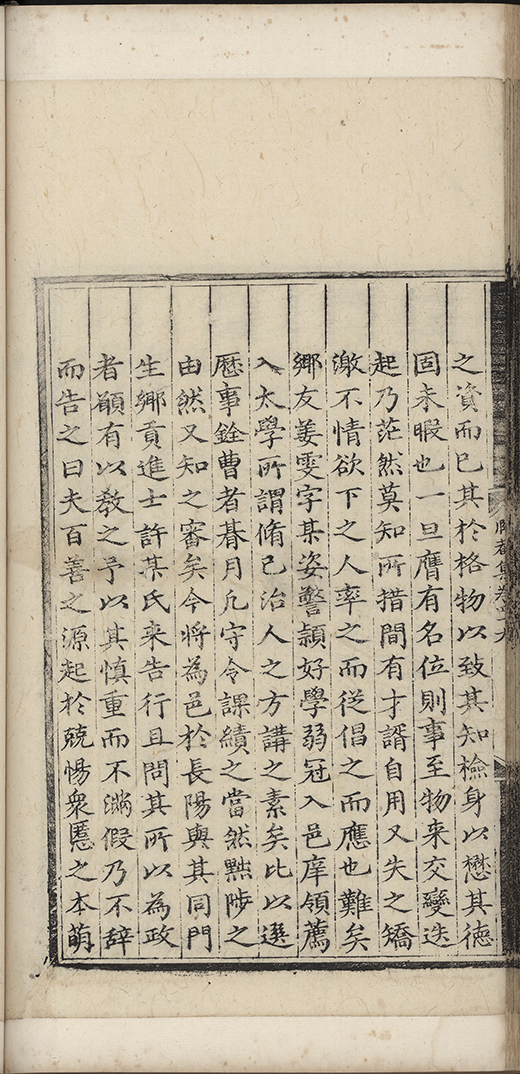 之資而已其於格物以致其知檢身以懋其德
固未暇也一旦膺有名位則事至物来交變迭
起乃茫然莫知所措間有才諝自用又失之矯
激不情欲下之人率之而従倡之而應也難矣
鄉友姜雯字某姿警頴好學弱冠入邑庠領薦
入太學所謂脩己治人之方講之素矣比以選
歴事銓曹者朞月凡守令課績之當然黜陟之
由然又知之審矣今將為邑於長陽與其同門
生鄉貢進士許某氏来告行且問其所以為政
者願有以教之予以其慎重而不滿假乃不辞
而告之曰夫百善之源起於兢惕衆慝之本萌